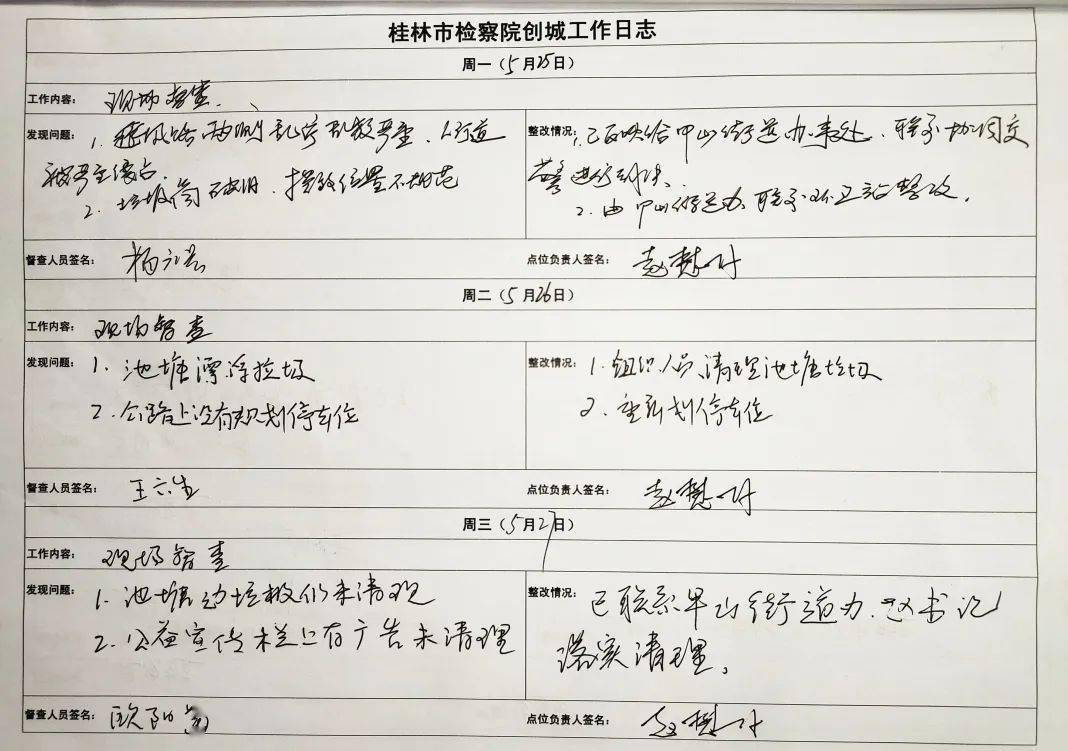 桂林市检察院创城工作日志
周一（5月25日）
工作内容： 现场督查、
发现问题： 1. 两侧乱停乱放严重，人行道
被严重侵占.
2. 垃圾筒破旧，摆放位置不规范
整改情况： 1.已反映给中山街道办事处，联系协调交
警进行
2. 由中山街道办联系环卫站整改。
督查人员签名： 杨
点位负责人签名： 赵
周二（5月26日）
工作内容： 现场督查
发现问题： 1. 池塘漂浮垃圾
2. 公路上没有规划停车位
整改情况： 1. 组织人员清理池塘垃圾
2. 重新划停车位
督查人员签名： 王六生
点位负责人签名： 赵
周三（5月27日）
工作内容： 现场督查
发现问题： 1. 池塘边垃圾仍未清理
2. 公益宣传栏上有广告未清理
整改情况： 已联系中山街道办赵书记
落实清理。
督查人员签名： 欧阳
点位负责人签名： 赵